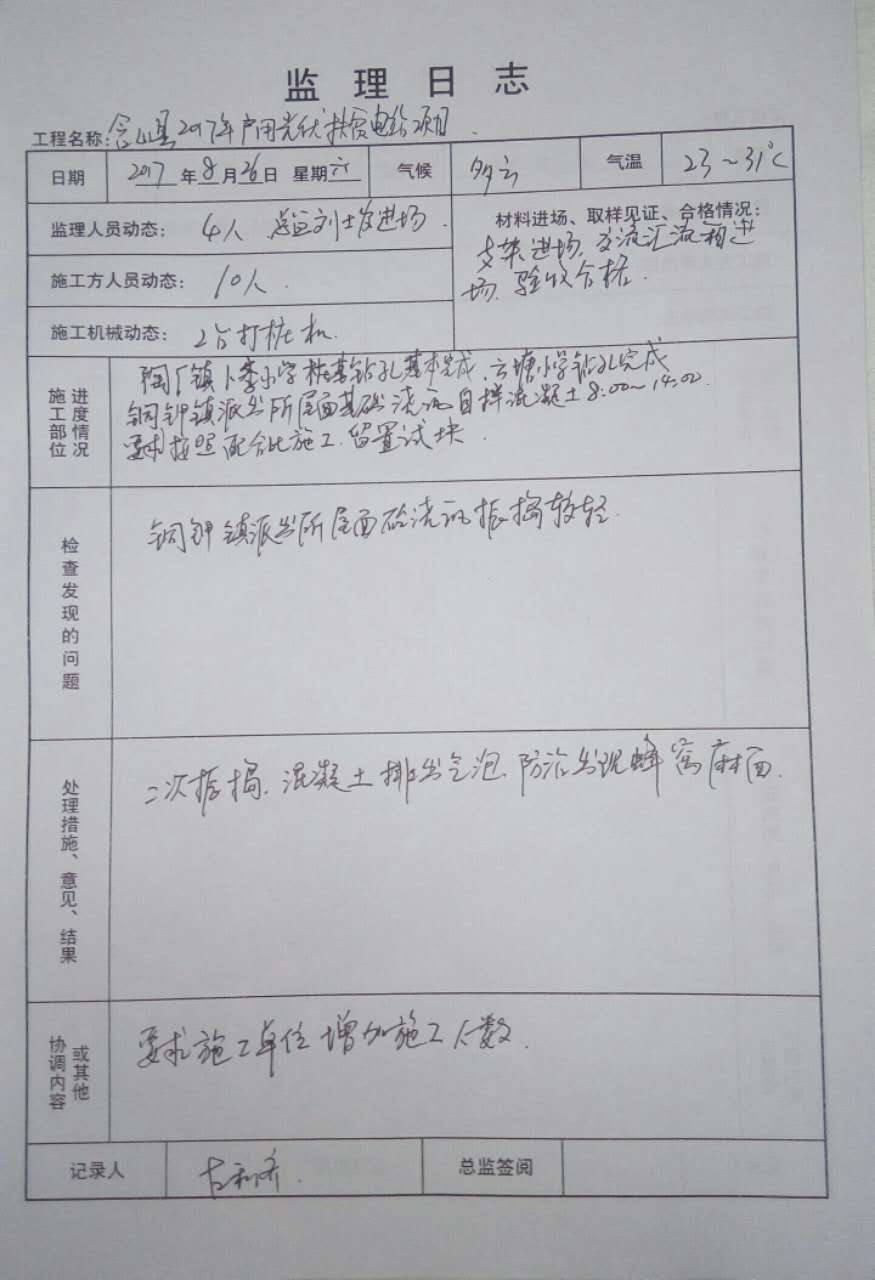 监理日志
工程名称：含山县2017年户用光伏扶贫电站项目.
日期 2017年8月26日 星期六 气候 多云 气温 23～31℃
监理人员动态： 4人 总监刘士发进场
材料进场、取样见证、合格情况：
支架进场，交流汇流箱进
场，验收合格.
施工方人员动态： 10人.
施工机械动态： 2台打桩机.
进度情况
施工部位
陶厂镇卜李小学桩基钻孔基本完成，方塘小学钻孔完成
铜闸镇派出所屋面基础浇筑自拌混凝土8:00～14:00.
要求按照配合比施工.留置试块.
检查发现的问题
铜闸镇派出所屋面砼浇筑振捣较轻.
处理措施、意见、结果
二次振捣，混凝土排出气泡、防治出现蜂窝麻面.
或其他
协调内容
要求施工单位增加施工人数.
记录人
总监签阅